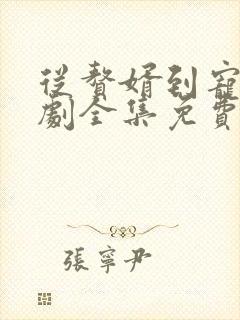 從贅婿到寵
劇全集免費
張寧尹